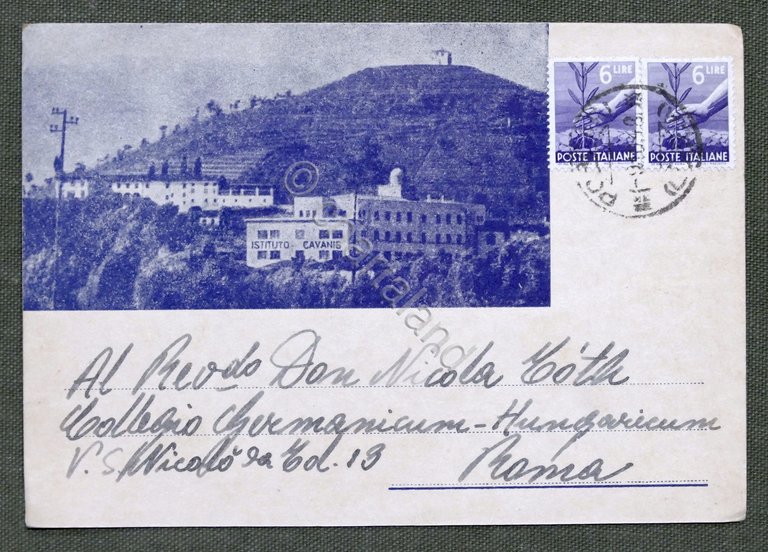 6 LIRE 6 LIRE
POSTE ITALIANE POSTE ITALIANE
ISTITUTO CAVANIS
Al Revdo Don Nicola Tóth
Collegio Germanicum-Hungaricum
V. S. Nicolò da Tol. 13 Roma